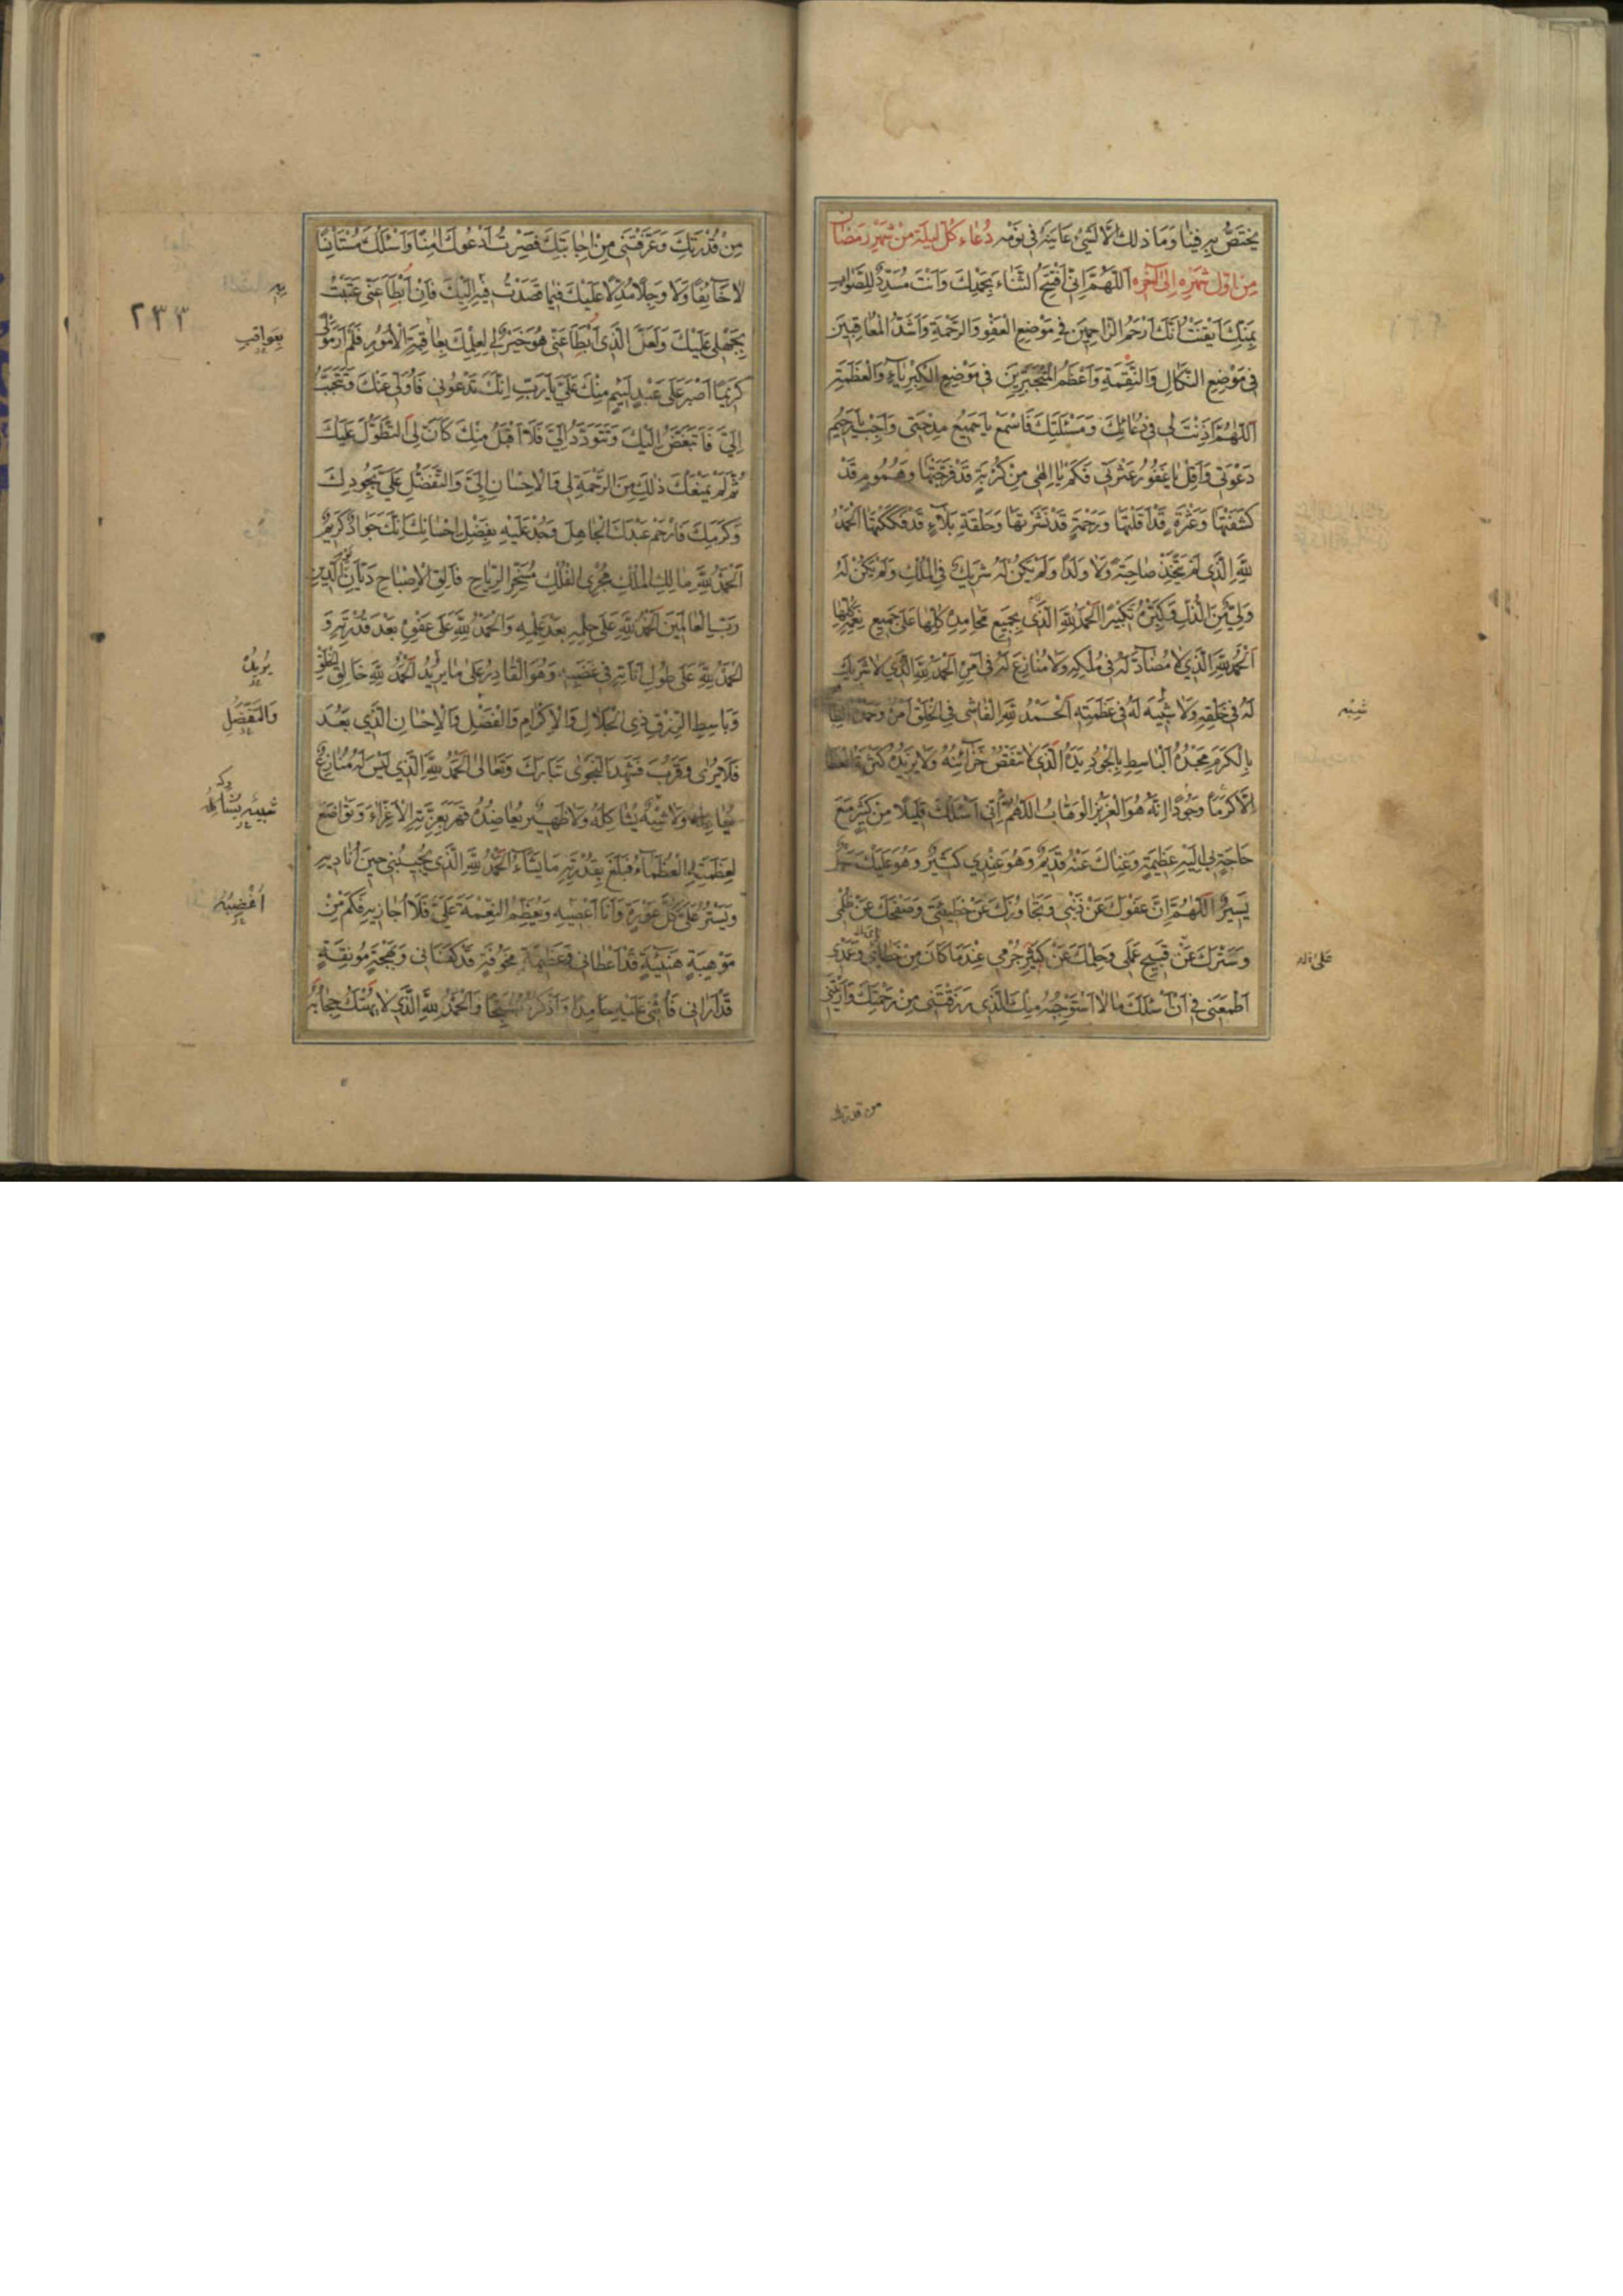 يَختَصُّ بِهِ فِينا وَمَا ذلِكَ اِلّا لِشَيْءٍ عَايَنَهُ فِي نَوْمِه دُعَاءِ كُلّ لَيلَة مِنْ شَهْرِ رَمَضَان
مِنْ اوّل شهْرِهِ اِلىٰ آخَرِه اَللّهُمَّ اِنّي اَفْتَتِحُ الثَّناءَ بِحَمْدِكَ وَاَنْتَ مُسَدِّدٌ لِلصَّوابِ
بِمَنِّكَ اَيْقَنْتُ اَنَّكَ اَرْحَمُ الرّاحِمِينَ فِي مَوْضِعِ الْعَفْوِ وَالرَّحْمَةِ وَاَشَدُّ الْمُعَاقِبِينَ
فِي مَوْضِعِ النَّكَالِ وَالنَّقِمَةِ وَاَعْظَمُ الْمُتَجَبِّرِينَ فِي مَوْضِعِ الْكِبْرِيَاءِ وَالْعَظَمَةِ
اَللّهُمَّ اَذِنْتَ لِي فِي دُعَائِكَ وَمَسْئَلَتِكَ فَاسْمَعْ يا سَمِيعُ مِدْحَتِي وَاَجِبْ يا رَحِيمُ
دَعْوَتِي وَاَقِلْ يا غَفُورُ عَثْرَتِي فَكَمْ يا اِلهِي مِنْ كُرْبَةٍ قَدْ فَرَّجْتَها وَهُمُومٍ قَدْ
كَشَفْتَها وَعَثْرَةٍ قَدْ اَقَلْتَها وَرَحْمَةٍ قَدْ نَشَرْتَها وَحَلْقَةِ بَلاءٍ قَدْ فَكَكْتَها اَلْحَمْدُ
لِلّهِ الَّذِي لَمْ يَتَّخِذْ صَاحِبَةً وَلا وَلَدًا وَلَمْ يَكُنْ لَهُ شَرِيكٌ فِي الْمُلْكِ وَلَمْ يَكُنْ لَهُ
وَلِيٌّ مِنَ الذُّلِّ وَكَبِّرْهُ تَكْبِيرًا اَلْحَمْدُ لِلّهِ الَّذِي بِجَمِيعِ مَحَامِدِهِ كُلِّها عَلىٰ جَمِيعِ نِعَمِهِ كُلِّها
اَلْحَمْدُ لِلّهِ الَّذِي لا مُضَادَّ لَهُ فِي مُلْكِهِ وَلا مُنَازِعَ لَهُ فِي اَمْرِهِ اَلْحَمْدُ لِلّهِ الَّذِي لا شَرِيكَ
لَهُ فِي خَلْقِهِ وَلا شَبِيهَ لَهُ فِي عَظَمَتِهِ اَلْحَمْدُ لِلّهِ الْفَاشِي فِي الْخَلْقِ اَمْرُهُ وَحَمْدُهُ الظّاهِرِ
شَبِيه
بِالْكَرَمِ مَجْدُهُ اَلْبَاسِطِ بِالْجُودِ يَدَهُ الَّذِي لا تَنْقُصُ خَزَائِنُهُ وَلا يَزِيدُهُ كَثْرَةُ الْعَطَا
اِلّا كَرَمًا وَجُودًا اِنَّهُ هُوَ الْعَزِيزُ الْوَهّابُ اَللّهُمَّ اِنِّي اَسْئَلُكَ قَلِيلًا مِنْ كَثِيرٍ مَعَ
حَاجَةٍ بِي اِلَيْهِ عَظِيمَةٍ وَغِنَاكَ عَنْهُ قَدِيمٌ وَهُوَ عِنْدِي كَثِيرٌ وَهُوَ عَلَيْكَ سَهْلٌ
يَسِيرٌ اَللّهُمَّ اِنَّ عَفْوَكَ عَنْ ذَنْبِي وَتَجَاوُزَكَ عَنْ خَطِيئَتِي وَصَفْحَكَ عَنْ ظُلْمِي
وَسَتْرَكَ عَنْ قَبِيحِ عَمَلِي وَحِلْمَكَ عَنْ كَثِيرِ جُرْمِي عِنْدَ مَا كَانَ مِنْ خَطَائِي وَعَمْدِي
عَلىٰ
اَطْمَعَنِي فِي اَنْ اَسْئَلَكَ مَا لا اَسْتَوْجِبُهُ مِنْكَ الَّذِي رَزَقْتَنِي مِنْ رَحْمَتِكَ وَاَرَيْتَنِي
من قدرتك
مِنْ قُدْرَتِكَ وَعَرَّفْتَنِي مِنْ اِجَابَتِكَ فَصِرْتُ اَدْعُوكَ آمِنًا وَاَسْئَلُكَ مُسْتَأْنِسًا
لا خَائِفًا وَلا وَجِلًا مُدِلًّا عَلَيْكَ فِيمَا قَصَدْتُ فِيهِ اِلَيْكَ فَاِنْ اَبْطَأَ عَنِّي عَتَبْتُ
بِهِ
٢٣٣
بِجَهْلِي عَلَيْكَ وَلَعَلَّ الَّذِي اَبْطَأَ عَنِّي هُوَ خَيْرٌ لِي لِعِلْمِكَ بِعَاقِبَةِ الْاُمُورِ فَلَمْ اَرَ مَوْلًى
بِعَواقِبِ
كَرِيمًا اَصْبَرَ عَلىٰ عَبْدٍ لَئِيمٍ مِنْكَ عَلَيَّ يا رَبِّ اِنَّكَ تَدْعُونِي فَاُوَلِّي عَنْكَ وَتَتَحَبَّبُ
اِلَيَّ فَاَتَبَغَّضُ اِلَيْكَ وَتَتَوَدَّدُ اِلَيَّ فَلا اَقْبَلُ مِنْكَ كَاَنَّ لِيَ التَّطَوُّلَ عَلَيْكَ
ثُمَّ لَمْ يَمْنَعْكَ ذلِكَ مِنَ الرَّحْمَةِ لِي وَالْاِحْسَانِ اِلَيَّ وَالتَّفَضُّلِ عَلَيَّ بِجُودِكَ
وَكَرَمِكَ فَارْحَمْ عَبْدَكَ الْجَاهِلَ وَجُدْ عَلَيْهِ بِفَضْلِ اِحْسَانِكَ اِنَّكَ جَوَادٌ كَرِيمٌ
اَلْحَمْدُ لِلّهِ مَالِكِ الْمُلْكِ مُجْرِي الْفُلْكِ مُسَخِّرِ الرِّيَاحِ فَالِقِ الْاِصْبَاحِ دَيّانِ الدِّينِ
رَبِّ الْعَالَمِينَ اَلْحَمْدُ لِلّهِ عَلىٰ حِلْمِهِ بَعْدَ عِلْمِهِ وَالْحَمْدُ لِلّهِ عَلىٰ عَفْوِهِ بَعْدَ قُدْرَتِهِ وَ
الْحَمْدُ لِلّهِ عَلىٰ طُولِ اَنَاتِهِ فِي غَضَبِهِ وَهُوَ الْقَادِرُ عَلىٰ مَا يُرِيدُ اَلْحَمْدُ لِلّهِ خَالِقِ الْخَلْقِ
يُرِيدُ
وَبَاسِطِ الرِّزْقِ ذِي الْجَلالِ وَالْاِكْرَامِ وَالْفَضْلِ وَالْاِحْسَانِ الَّذِي بَعُدَ
وَالتَّفَضُّلِ
فَلا يُرىٰ وَقَرُبَ فَشَهِدَ النَّجْوىٰ تَبَارَكَ وَتَعَالىٰ اَلْحَمْدُ لِلّهِ الَّذِي لَيْسَ لَهُ مُنَازِعٌ
يُعَادِلُهُ وَلا شِبْهٌ يُشَاكِلُهُ وَلا ظَهِيرٌ يُعَاضِدُهُ قَهَرَ بِعِزَّتِهِ الْاَعِزّاءَ وَتَوَاضَعَ
شَبِيهٌ يُشَاكِلُهُ
لِعَظَمَتِهِ الْعُظَمَاءُ فَبَلَغَ بِقُدْرَتِهِ مَا يَشَاءُ اَلْحَمْدُ لِلّهِ الَّذِي يُجِيبُنِي حِينَ اُنَادِيهِ
وَيَسْتُرُ عَلَيَّ كُلَّ عَوْرَةٍ وَاَنَا اَعْصِيهِ وَيُعَظِّمُ النِّعْمَةَ عَلَيَّ فَلا اُجَازِيهِ فَكَمْ مِنْ
اُغْضِبُهُ
مَوْهِبَةٍ هَنِيئَةٍ قَدْ اَعْطَانِي وَعَظِيمَةٍ مَخُوفَةٍ قَدْ كَفَانِي وَبَهْجَةٍ مُونِقَةٍ
قَدْ اَرَانِي فَاُثْنِي عَلَيْهِ حَامِدًا وَاَذْكُرُهُ مُسَبِّحًا وَالْحَمْدُ لِلّهِ الَّذِي لا يُهْتَكُ حِجَابُهُ